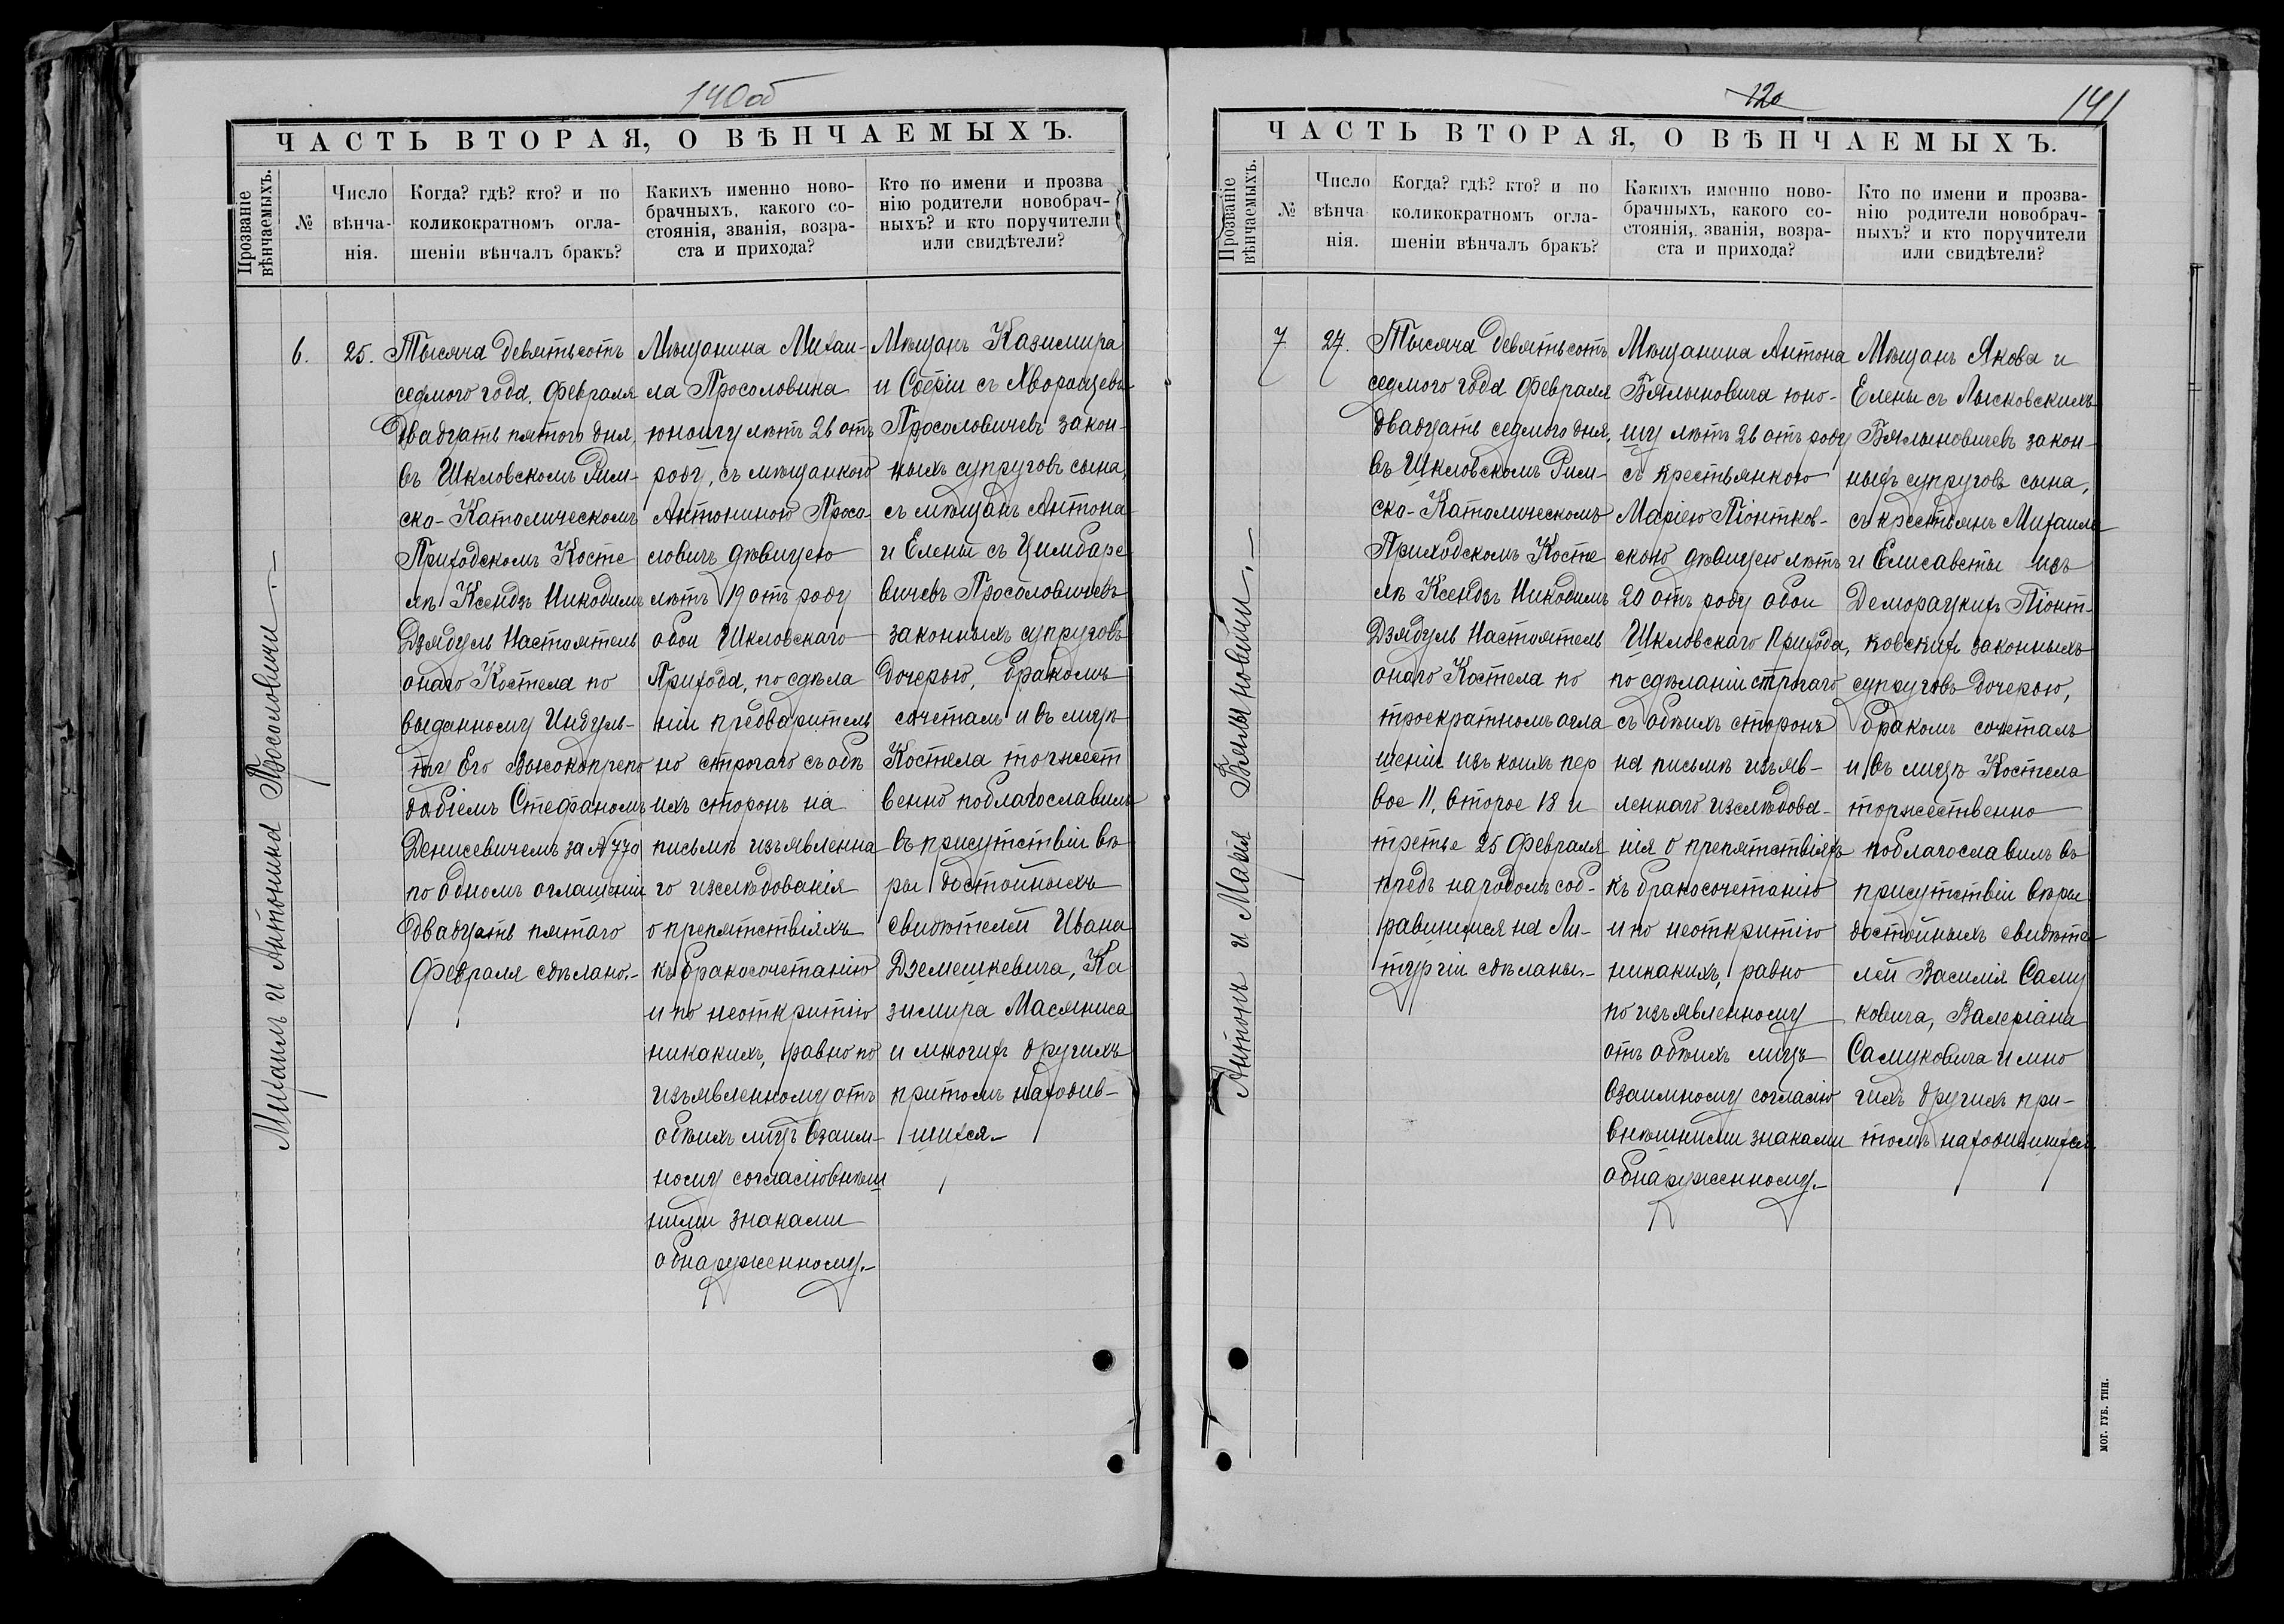 140об
ЧАСТЬ ВТОРАЯ, О ВѢНЧАЕМЫХЪ.
Прозваніе
вѣнчаемыхъ.
№
Число
вѣнча-
нія.
Когда? гдѣ? кто? и по
коликократномъ огла-
шеніи вѣнчалъ бракъ?
Какихъ именно ново-
брачныхъ, какого со-
стоянія, званія, возра-
ста и прихода?
Кто по имени и прозва
нію родители новобрач-
ныхъ? и кто поручители
или свидѣтели?
Михаилъ и Антонина Просоловичи.—
6.
25.
Тысяча девятьсотъ
седмого года, Февраля
двадцать пятого дня,
въ Шкловскомъ Рим-
ско-Католическомъ
Приходскомъ Косте
лѣ Ксендзъ Никодимъ
Дзядуль Настоятель
онаго Костела по
выданному Индуль-
ту Его Высокопрепо
добіемъ Стефаномъ
Денисевичемъ за № 770
по одномъ оглашеніи
двадцать пятаго
Февраля сдѣлано.—
Мѣщанина Михаи-
ла Просоловича
юношу лѣтъ 26 отъ
роду, съ мѣщанкою
Антониною Просо-
ловичъ дѣвицею
лѣтъ 19 отъ роду
обои Шкловскаго
Прихода, по сдѣла
ніи предваритель
но строгаго съ обѣ
ихъ сторонъ на
письмѣ изъявленна
го изслѣдованія
о препятствіяхъ
къ бракосочетанію
и по неоткритію
никакихъ, равно по
изъявленному отъ
обѣихъ лицъ взаим-
ному согласію внѣш
ними знаками
обнаруженному.—
Мѣщанъ Казимира
и Софіи съ Хворощевъ
Просоловичевъ закон-
ныхъ супруговъ сына,
съ мѣщанъ Антона
и Елены съ Цимбаре
вичевъ Просоловичевъ
законныхъ супруговъ
дочерью, бракомъ
сочеталъ и въ лицѣ
Костела торжест
венно поблагославилъ
въ присутствіи вѣ
ры достойныхъ
свидѣтелей Ивана
Дземешкевича, Ка
зимира Масяниса
и многихъ другихъ
притомъ находив-
шихся.—
120
141
ЧАСТЬ ВТОРАЯ, О ВѢНЧАЕМЫХЪ.
Прозваніе
вѣнчаемыхъ.
№
Число
вѣнча
нія.
Когда? гдѣ? кто? и по
коликократномъ огла-
шеніи вѣнчалъ бракъ?
Какихъ именно ново-
брачныхъ, какого со-
стоянія, званія, возра-
ста и прихода?
Кто по имени и прозва-
нію родители новобрач-
ныхъ? и кто поручители
или свидѣтели?
Антонъ и Марія Бялыновичи.—
7
27.
Тысяча девятьсотъ
седмого года Февраля
двадцать седмого дня,
въ Шкловскомъ Рим-
ско-Католическомъ
Приходскомъ Косте
лѣ Ксендзъ Никодимъ
Дзядуль Настоятель
онаго Костела по
троекратномъ огла
шеніи изъ коихъ пер
вое 11, второе 18 и
третье 25 Февраля
предъ народомъ соб-
равшимся на Ли-
тургіи сдѣланы.—
Мѣщанина Антона
Бялыновича юно-
шу лѣтъ 26 отъ роду
съ крестьянкою
Маріею Піонтков-
скою дѣвицею лѣтъ
20 отъ роду обои
Шкловскаго Прихода,
по сдѣланіи строгаго
съ обѣихъ сторонъ
на письмѣ изъяв-
леннаго изслѣдова-
нія о препятствіяхъ
къ бракосочетанію
и по неоткритію
никакихъ, равно
по изъявленному
отъ обѣихъ лицъ
взаимному согласію
внѣшними знаками
обнаруженному.—
Мѣщанъ Якова и
Елены съ Лысковскихъ
Бялыновичевъ закон-
ныхъ супруговъ сына,
съ крестьянъ Михаила
и Елисаветы изъ
Деморацкихъ Піонт-
ковскихъ законныхъ
супруговъ дочерью,
бракомъ сочеталъ
и въ лицѣ Костела
торжественно
поблагославилъ въ
присутствіи вѣры
достойныхъ свидѣте-
лей Василія Саму
ковича, Валеріана
Самуковича и мно
гихъ другихъ при-
томъ находившихся.
МОГ. ГУБ. ТИП.